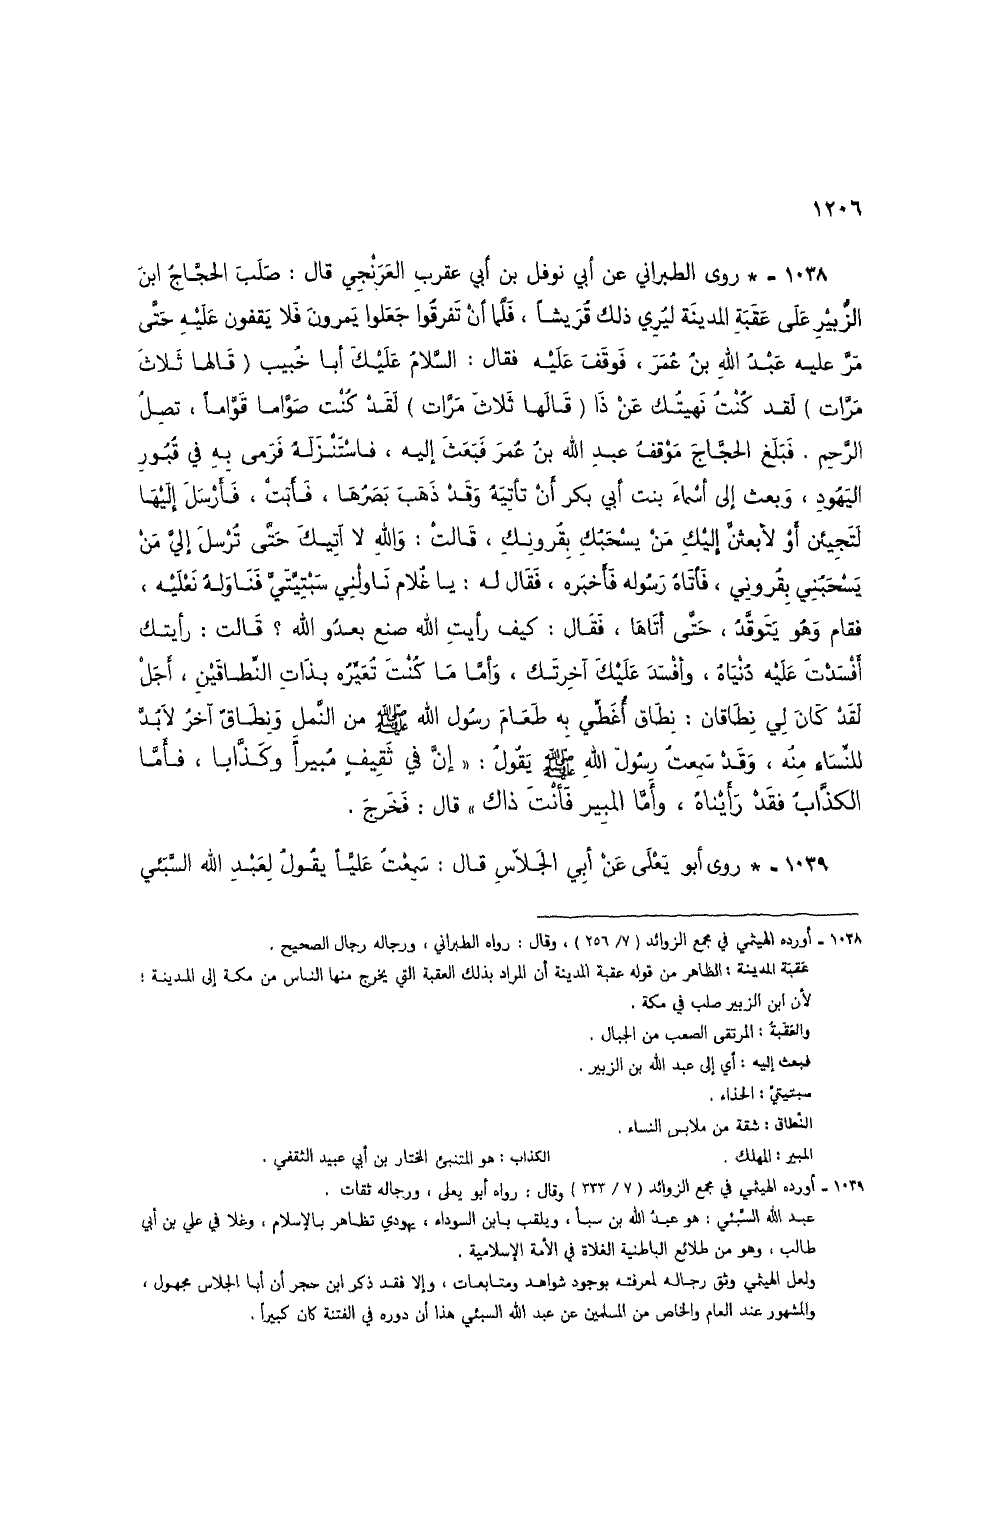 ١٢٠٦
١٠٣٨ ـ * روى الطبراني عن أبي نوفل بن أبي عقربِ العَرَنْجي قال : صَلَبَ الحجَّاجُ ابنَ
الزُّبيْرِ عَلَى عَقَبَةِ المدينَة ليُرِي ذلك قُرَيشاً ، فَلَّمَا أنْ تَفرقُوا جَعَلوا يَمرونَ فَلا يَقفون عَلَيْهِ حَتَّى
مَرَّ عليه عَبْدُ اللهِ بنُ عُمَرَ ، فَوقَفَ عَلَيْه فقال : السَّلامُ عَلَيْكَ أبا خُبيب ( قَالها ثَلاثَ
مَرَّات ) لَقد كُنْتُ نَهيتُك عَنْ ذَا ( قَالَها ثَلاثَ مَرَّات ) لَقَدْ كُنْت صَوَّاما قَوَّاماً ، تصلُ
الرَّحِم . فَبَلَغ الحَجَّاجَ مَوْقفُ عبدِ الله بنُ عُمرَ فَبَعَثَ إليه ، فاسْتَنْزَلَهُ فَرَمى بهِ في قُبُورِ
اليَهُودِ ، وَبعث إلى أسْماءَ بنت أبي بكر أَنْ تأتيَهُ وَقَدْ ذَهَبَ بَصَرُهَا ، فَأَبَتْ ، فَأَرْسَلَ إِلَيْهَا
لَتَجيئن أَوْ لأبعثنَّ إليْكِ مَنْ يسْحَبُك بِقُرونِك ، قَالتْ : وَاللهِ لا آتِيكَ حَتَّى تُرْسلَ إليَّ مَنْ
يَسْحَبُني بِقُروني ، فَأَتَاهُ رَسُوله فَأَخبَره ، فَقَال له : يا غُلام نَاولْني سَبْتِيَّتَيَّ فَنَاوَلهُ نَعْلَيْه ،
فقام وَهُو يَتَوقَّدُ ، حَتَّى أتَاهَا ، فَقَال : كيف رأيتِ الله صنع بعدُو الله ؟ قَالت : رأيتك
أَفْسَدْتَ عَلَيْه دُنْيَاهُ ، وأَفْسَدَ عَلَيْكَ آخِرتَك ، وَأمَّا مَا كُنْتَ تُعَيِّرُه بِذَاتِ النِّطَاقَيْنِ ، أَجَلْ
لَقَدْ كَانَ لِي نِطَاقان : نِطَاق أُغَطِّي به طَعَامَ رسُول الله ﷺ من النَّملِ وَنِطَاقٌ آخرُ لاَبُدَّ
للنِّسَاء مِنْه ، وَقَدْ سَمعتُ رسُولَ اللهِ ﷺ يَقُولُ : « إنَّ في ثَقيفٍ مُبيراً وكَذَّابا ، فأَمَّا
الكذَّابُ فقَدْ رَأَيْناهُ ، وأَمَّا المبير فَأَنْتَ ذاك » قال : فَخَرجَ .
١٠٣٩ ـ * روى أبو يَعْلَى عَنْ أبي الجَلاّسِ قال : سَمعْتُ عَليًّا يقُولُ لِعَبْدِ الله السَّبَئي
١٠٣٨ ـ أورده الهيثمي في مجمع الزوائد ( ٧/ ٢٥٦ ) ، وقال : رواه الطبراني ، ورجاله رجال الصحيح .
عَقبَة المدينة : الظاهر من قوله عقبة المدينة أن المراد بذلك العقبة التي يخرج منها الناس من مكة إلى المدينة ؛
لأن ابن الزبير صلب في مكة .
والعَقَبةُ : المرتقى الصعب من الجبال .
فبعث إليه : أي إلى عبد الله بن الزبير .
سبتيتيَّ : الحذاء .
النِّطاق : شقة من ملابس النساء .
المبير : المهلك . الكذاب : هو المتنبئ المختار بن أبي عبيد الثقفي .
١٠٣٩ ـ أورده الهيثمي في مجمع الزوائد ( ٧/ ٣٣٣ ) وقال : رواه أبو يعلى ، ورجاله ثقات .
عبد الله السَّبَئي : هو عبدُ الله بن سبأ ، ويلقب بابن السوداء ، يهودي تظاهر بالإسلام ، وغلا في علي بن أبي
طالب ، وهو من طلائع الباطنية الغلاة في الأمة الإسلامية .
ولعل الهيثمي وثق رجاله لمعرفته بوجود شواهد ومتابعات ، وإلا فقد ذكر ابن حجر أن أبا الجلاس مجهول ،
والمشهور عند العام والخاص من المسلمين عن عبد الله السبئي هذا أن دوره في الفتنة كان كبيراً .